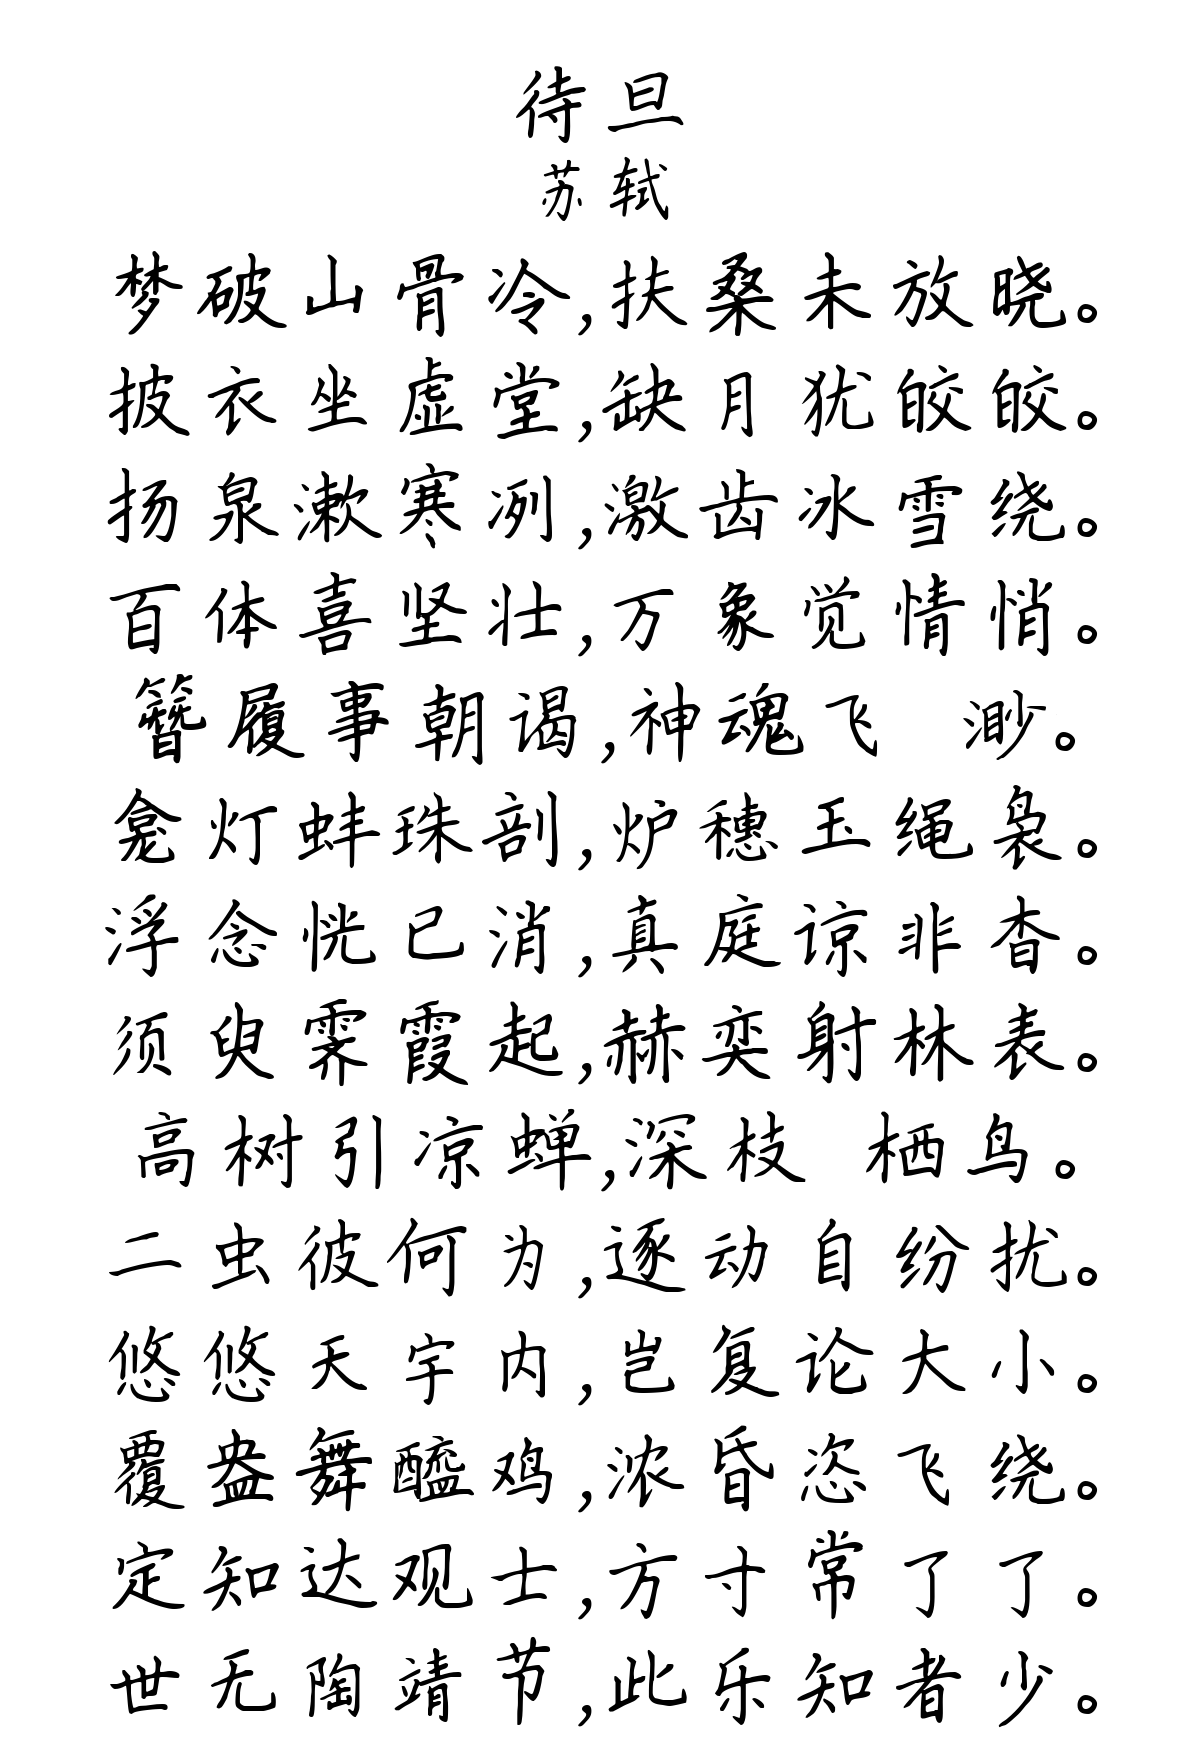 待旦
苏轼
梦破山骨冷,扶桑未放晓。
披衣坐虚堂,缺月犹皎皎。
扬泉漱寒冽,激齿冰雪绕。
百体喜坚壮,万象觉情悄。
簪履事朝谒,神魂飞 渺。
龛灯蚌珠剖,炉穗玉绳袅。
浮念恍已消,真庭谅非杳。
须臾霁霞起,赫奕射林表。
高树引凉蝉,深枝 栖鸟。
二虫彼何为,逐动自纷扰。
悠悠天宇内,岂复论大小。
覆盎舞醯鸡,浓昏恣飞绕。
定知达观士,方寸常了了。
世无陶靖节,此乐知者少。